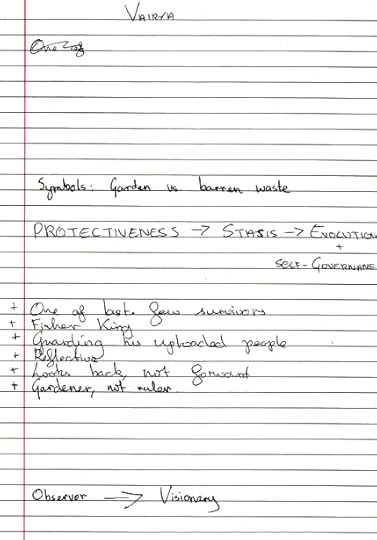 VAIRYA
One of
Symbols: Garden vs. barren waste
PROTECTIVENESS → STASIS → EVOLUTION
+
SELF-GOVERNANE
+ One of last few survivors
+ Fisher King
+ Guarding his uploaded people
+ Reflective
+ Looks back, not forward
+ Gardener, not ruler
Observer → Visionary